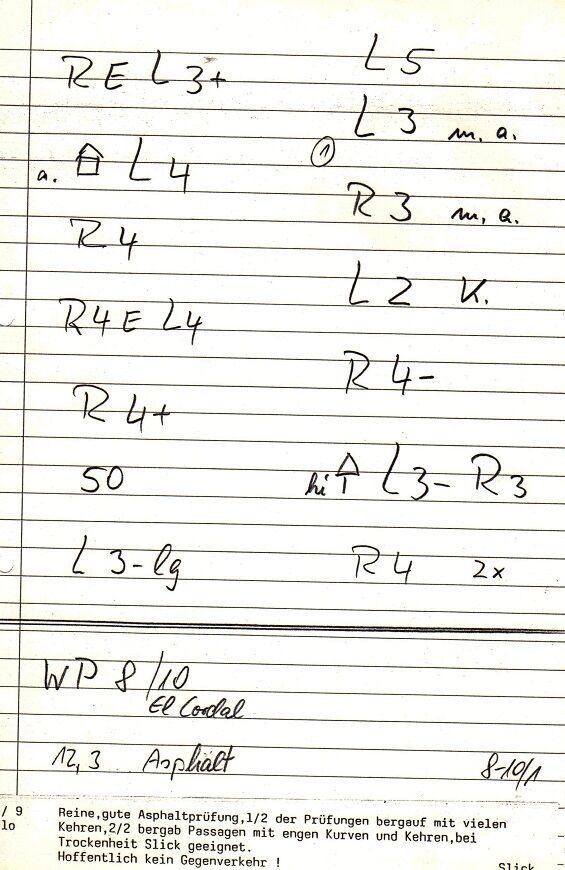 RE L3+
a. L4
R4
R4E L4
R4+
50
L 3-lg
L5
L3 m.a.
①
R3 m.a.
L2 K.
R4-
hi L3- R3
R4 2x
WP 8/10
El Cordal
12,3 Asphalt
8-10/1
/ 9
lo
Reine,gute Asphaltprüfung,1/2 der Prüfungen bergauf mit vielen
Kehren,2/2 bergab Passagen mit engen Kurven und Kehren,bei
Trockenheit Slick geeignet.
Hoffentlich kein Gegenverkehr !
Slick